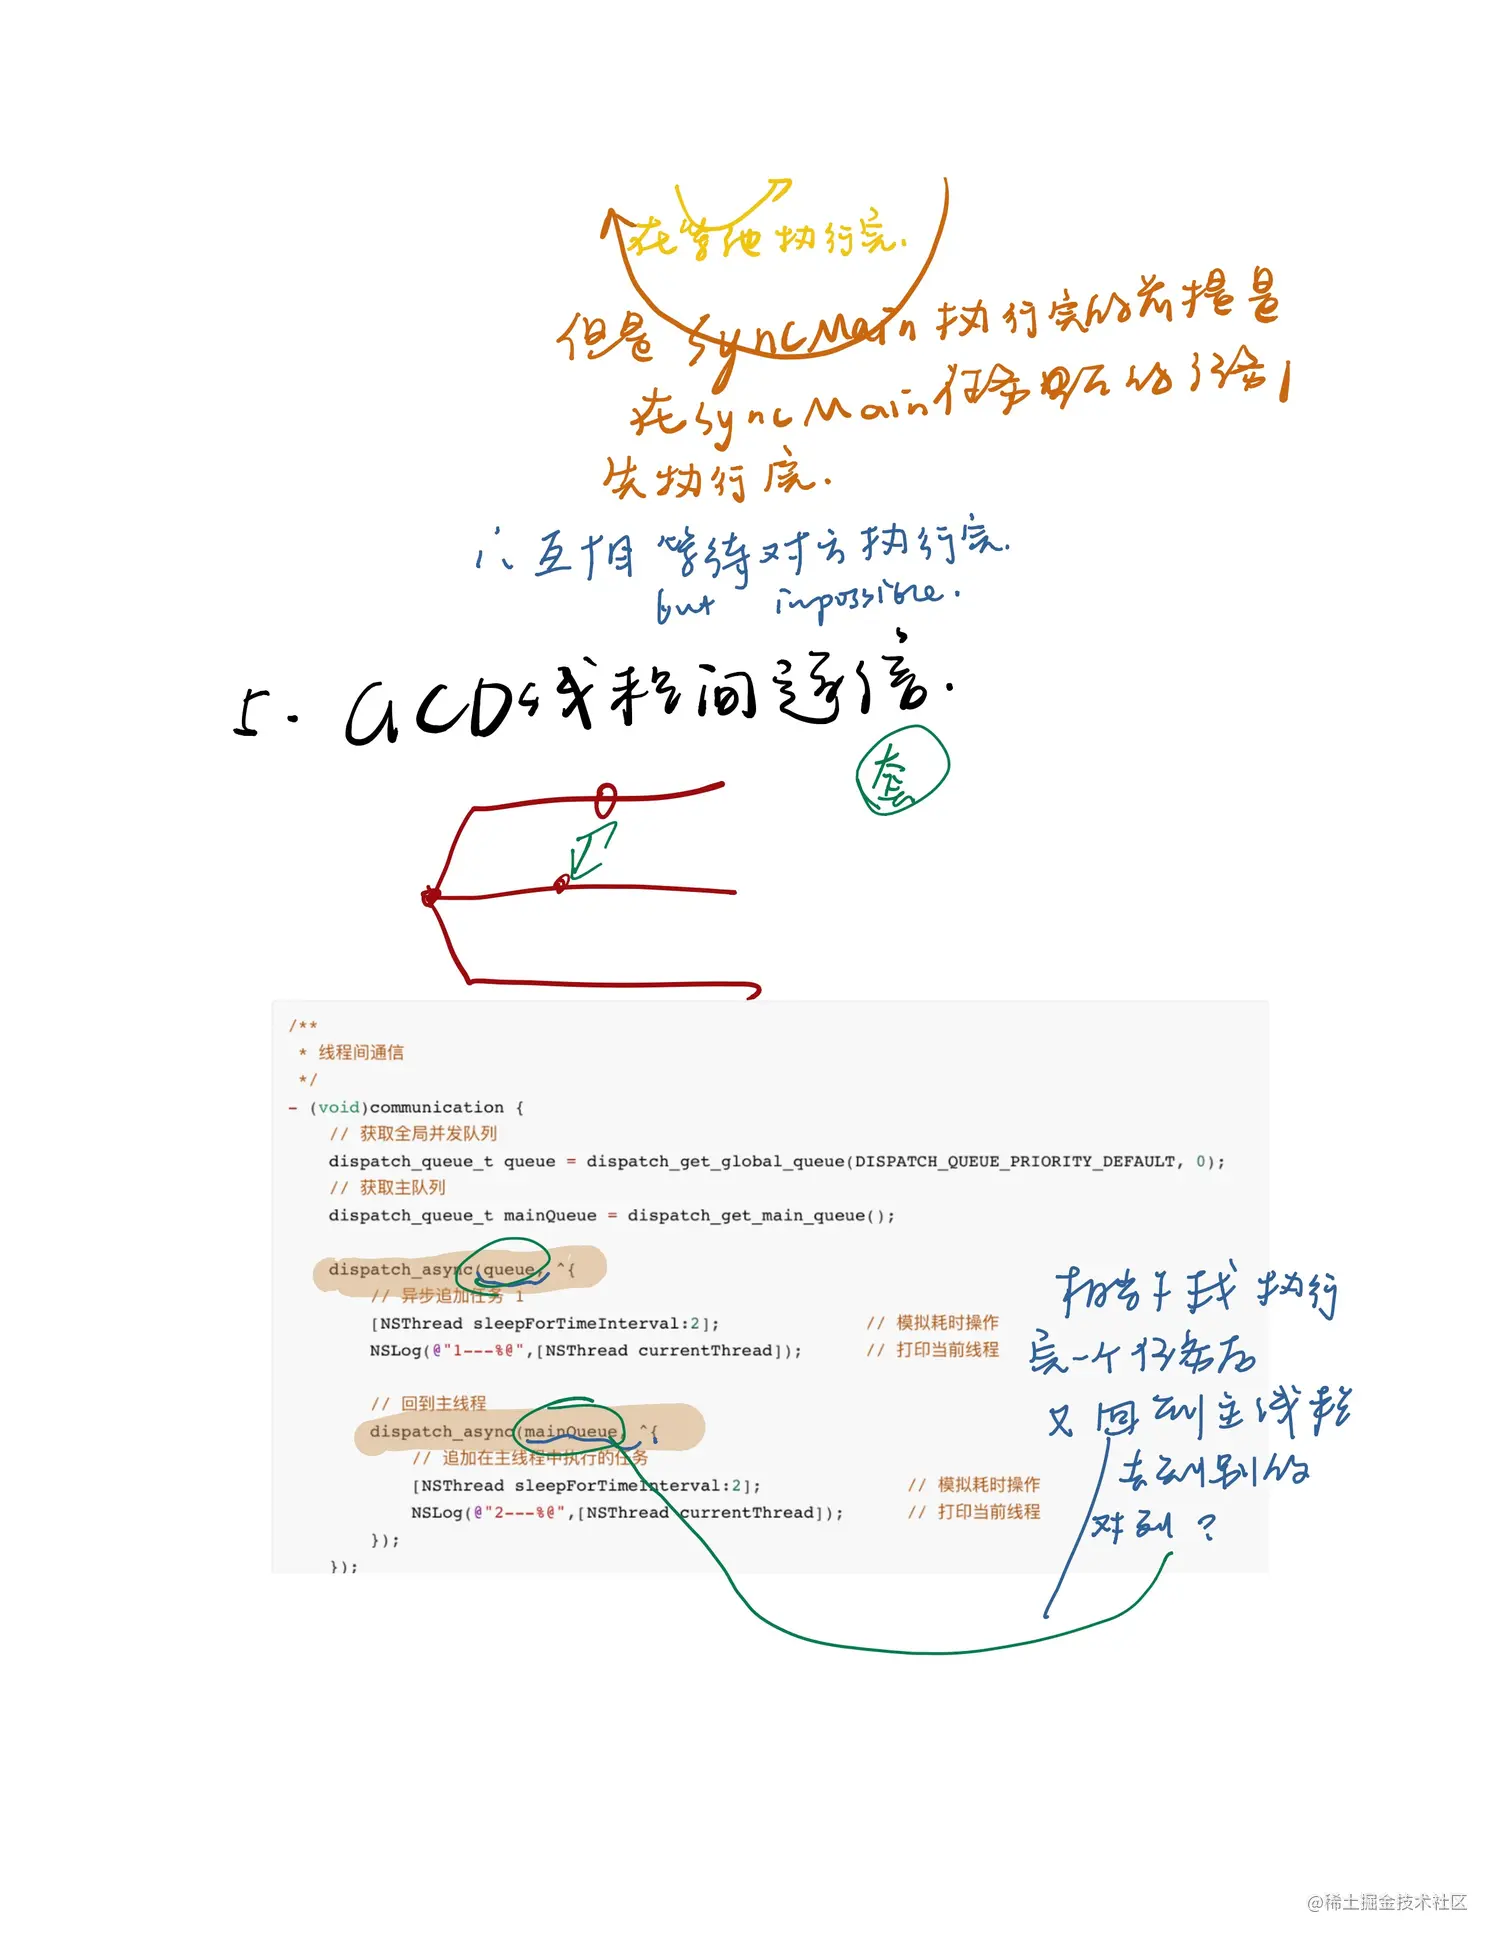 在等他执行完.
但是 syncMain 执行完的前提是
在syncMain任务之后的任务1
先执行完.
∴ 互相等待对方执行完.
but impossible.
5. GCD线程间通信.
套
/**
 * 线程间通信
 */
- (void)communication {
// 获取全局并发队列
dispatch_queue_t queue = dispatch_get_global_queue(DISPATCH_QUEUE_PRIORITY_DEFAULT, 0);
// 获取主队列
dispatch_queue_t mainQueue = dispatch_get_main_queue();
dispatch_async(queue, ^{
// 异步追加任务 1
[NSThread sleepForTimeInterval:2]; // 模拟耗时操作
NSLog(@"1---%@",[NSThread currentThread]); // 打印当前线程
// 回到主线程
dispatch_async(mainQueue, ^{
// 追加在主线程中执行的任务
[NSThread sleepForTimeInterval:2]; // 模拟耗时操作
NSLog(@"2---%@",[NSThread currentThread]); // 打印当前线程
});
});
相当于我执行
完一个任务后
又回到主线程
去到别的
对列?
@稀土掘金技术社区